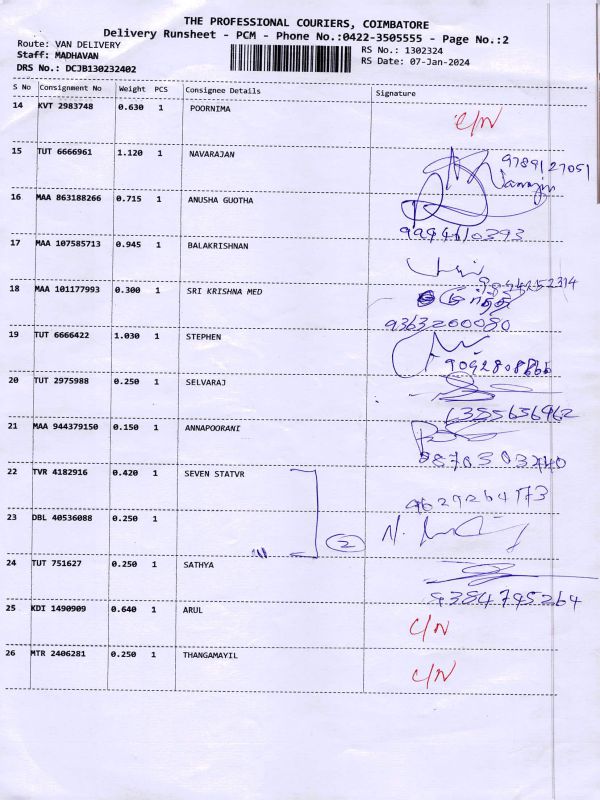 THE PROFESSIONAL COURIERS, COIMBATORE
Delivery Runsheet - PCM - Phone No.:0422-3505555 - Page No.:2
Route: VAN DELIVERY
Staff: MADHAVAN
DRS No.: DCJB130232402
RS No.: 1302324
RS Date: 07-Jan-2024
S No Consignment No Weight PCS Consignee Details Signature
14 KVT 2983748 0.630 1 POORNIMA C/N
15 TUT 6666961 1.120 1 NAVARAJAN 9789127051
16 MAA 863188266 0.715 1 ANUSHA GUOTHA 9994610393
17 MAA 107585713 0.945 1 BALAKRISHNAN
18 MAA 101177993 0.300 1 SRI KRISHNA MED 9363200080
19 TUT 6666422 1.030 1 STEPHEN
20 TUT 2975988 0.250 1 SELVARAJ
21 MAA 944379150 0.150 1 ANNAPOORANI
22 TVR 4182916 0.420 1 SEVEN STATVR 9629264173
23 DBL 40536088 0.250 1 2
24 TUT 751627 0.250 1 SATHYA 9384795264
25 KDI 1490909 0.640 1 ARUL C/N
26 MTR 2406281 0.250 1 THANGAMAYIL C/N